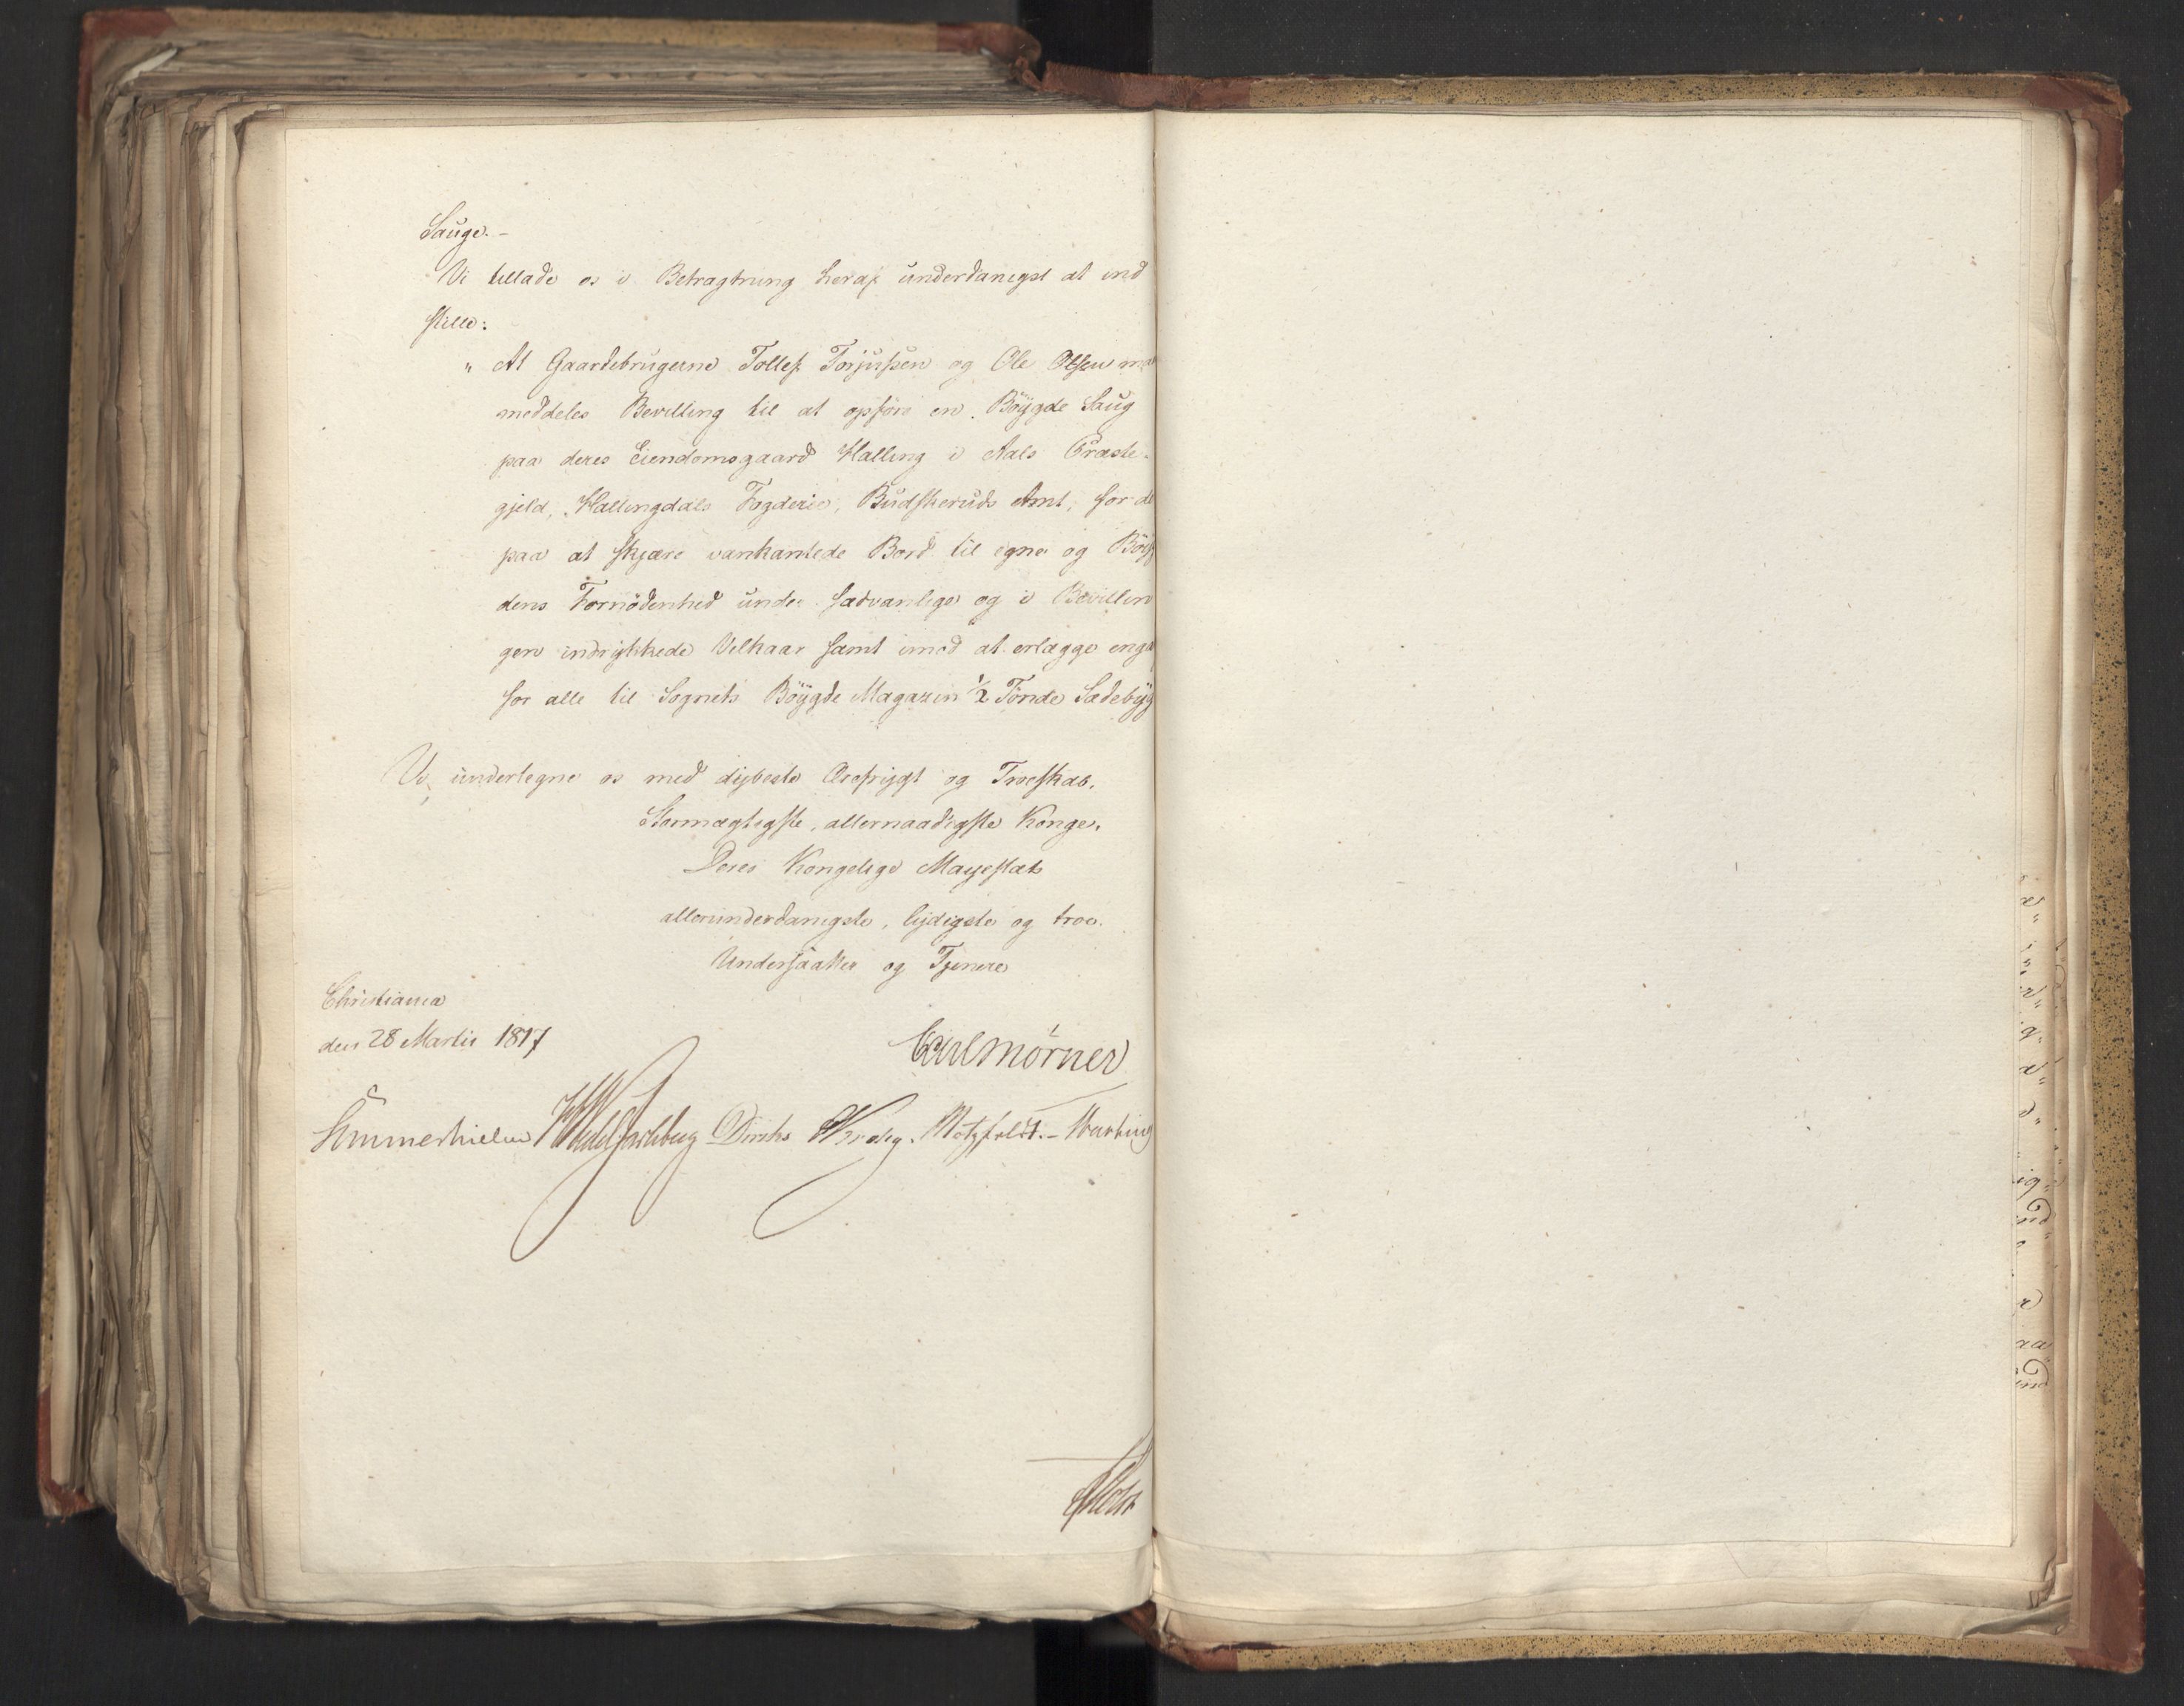 Sauge. -
Vi tillade os i Betragtning heraf underdanigst at ind
stille:
" At Gaardebrugerne Tollef Torjussen og Ole Olsen maa
meddeles Bevilling til at opføre en Böygde Saug
paa deres Eiendomsgaard Halling i Aals Præste-
gjeld, Hallingdals Fogderie, Budskeruds Amt, for der
paa at skjære vankantede Bord til egne og Böyg
dens Fornödenhed under sædvanlige og i Bevillin
gen indrykkede Vilkaar samt imod at erlægge engang
for alle til Sognets Böygde Magazin 1/2 Tönde Sædebyg
Vi undertegne os med dybeste Ærefrygt og Troeskab.
Stormægtigste, allernaadigste Konge,
Deres Kongelige Mayestæts
allerunderdanigste, lydigste og troe
Undersaatter og Tjenere
Christiania
den 28 Martii 1817
Carl Mörner
Sommerhielm HWedelJarlsberg Diriks Krog. Motzfeldt. -
Holst